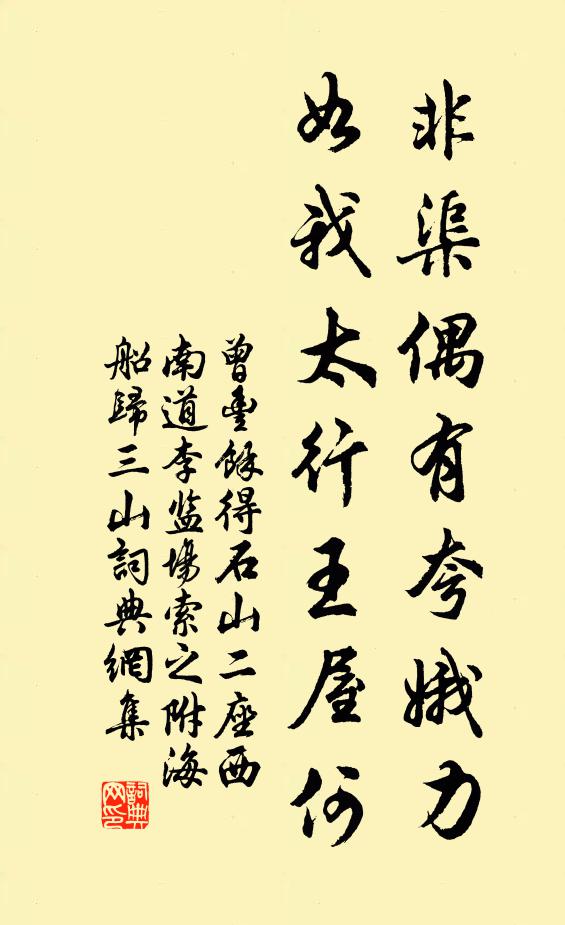 非渠偶有夸娥力
如我太行王屋何
曾豐餘得石山二座西
南道李监場索之附海
船歸三山詞典網集
詞典网印